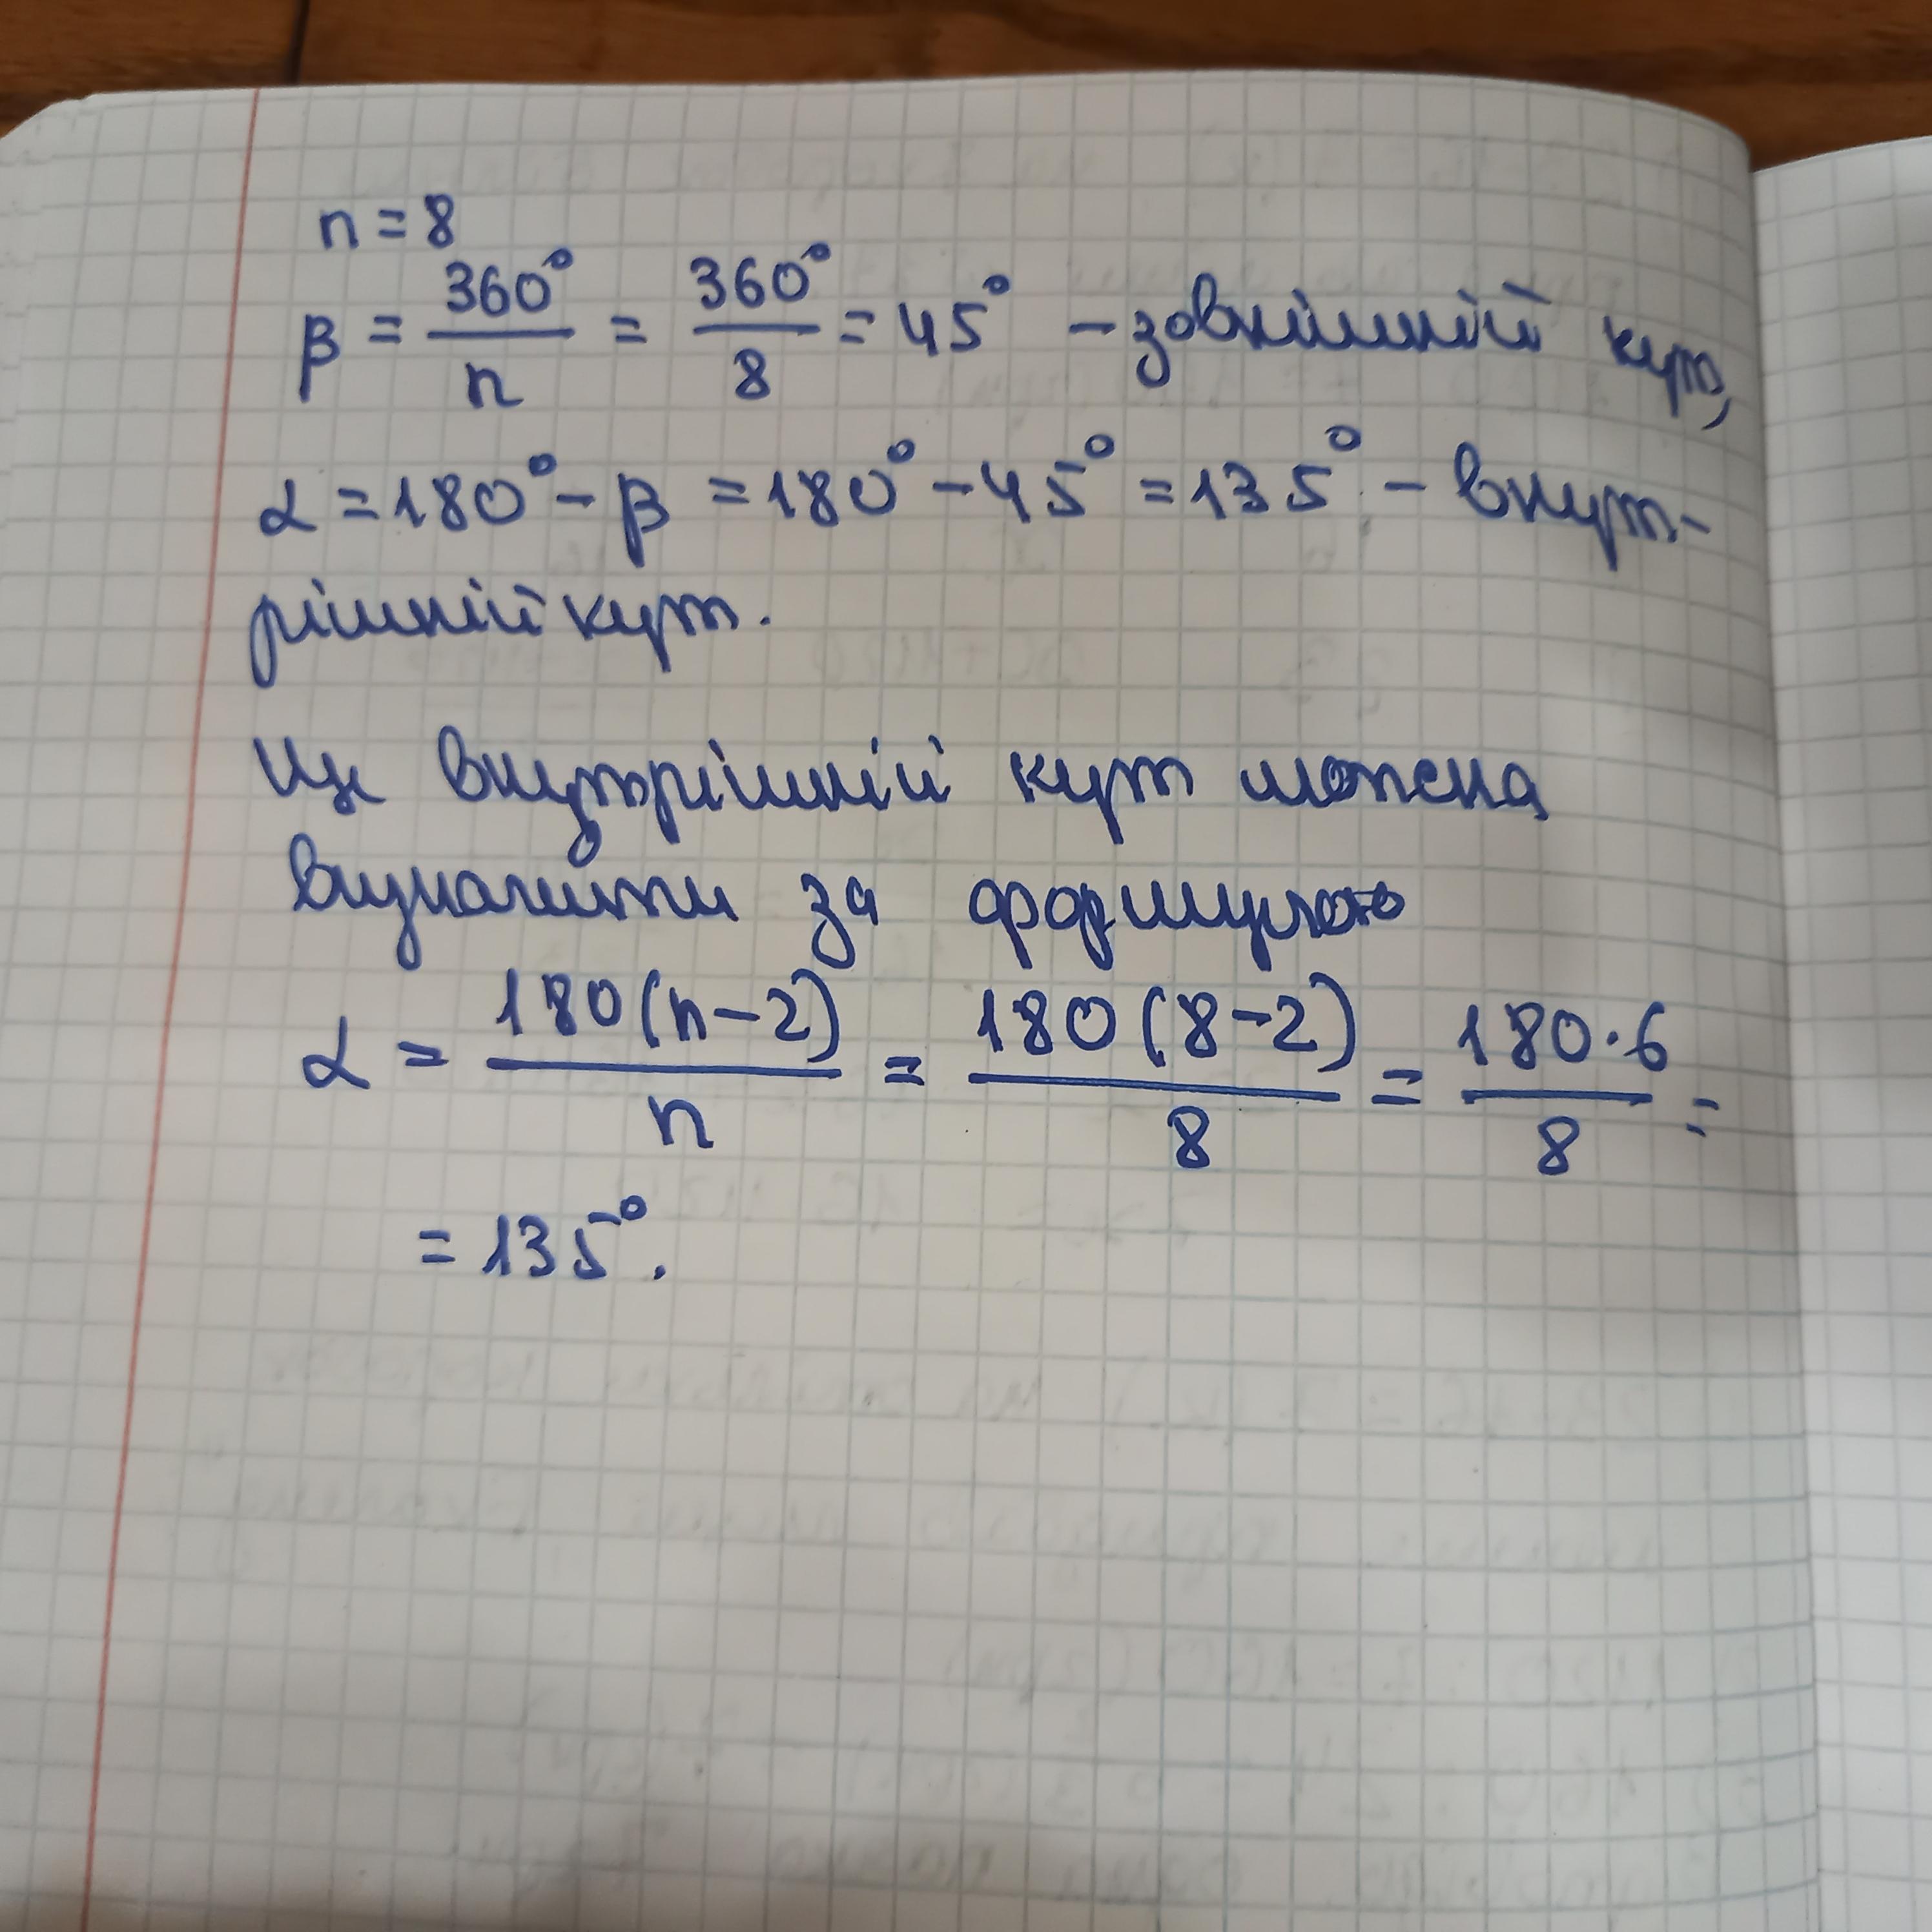 n = 8
β = 360°/n = 360°/8 = 45° – зовнішній кут,
α = 180° – β = 180° – 45° = 135° – внут-
рішній кут.
Ще внутрішній кут можна
визначити за формулою
α = 180(n – 2)/n = 180(8 – 2)/8 = 180·6/8 =
= 135°.